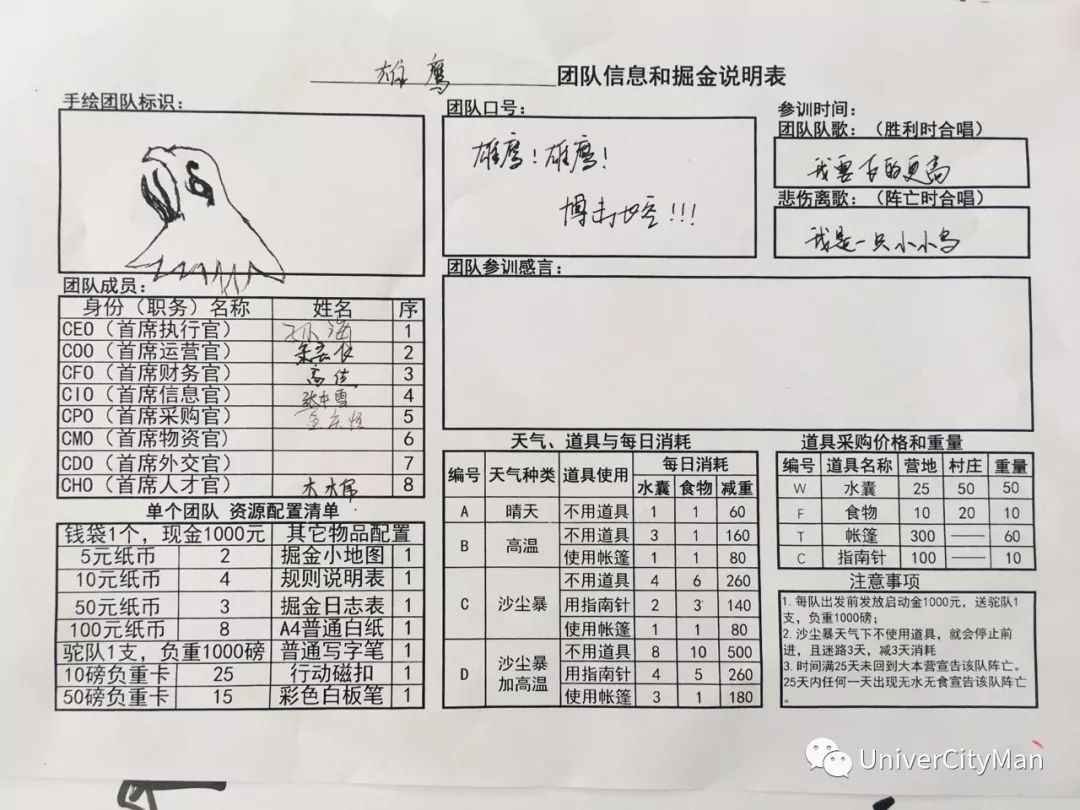 雄鹰 团队信息和掘金说明表
手绘团队标识：
团队口号：
雄鹰！雄鹰！
博击长空!!!
参训时间：
团队队歌：（胜利时合唱）
我要飞的更高
悲伤离歌：（阵亡时合唱）
我是一只小小鸟
团队参训感言：
团队成员：
身份（职务）名称 姓名 序
CEO（首席执行官） 孙海 1
COO（首席运营官） 2
CFO（首席财务官） 高佳 3
CIO（首席信息官） 4
CPO（首席采购官） 5
CMO（首席物资官） 6
CDO（首席外交官） 7
CHO（首席人才官） 8
单个团队 资源配置清单
钱袋1个，现金1000元 其它物品配置
5元纸币 2 掘金小地图 1
10元纸币 4 规则说明表 1
50元纸币 3 掘金日志表 1
100元纸币 8 A4普通白纸 1
驼队1支，负重1000磅 普通写字笔 1
10磅负重卡 25 行动磁扣 1
50磅负重卡 15 彩色白板笔 1
天气、道具与每日消耗
编号 天气种类 道具使用 每日消耗
水囊 食物 减重
A 晴天 不用道具 1 1 60
B 高温 不用道具 3 1 160
使用帐篷 1 1 80
C 沙尘暴 不用道具 4 6 260
用指南针 2 3 140
使用帐篷 1 1 80
D 沙尘暴加高温 不用道具 8 10 500
用指南针 4 5 260
使用帐篷 3 1 180
道具采购价格和重量
编号 道具名称 营地 村庄 重量
W 水囊 25 50 50
F 食物 10 20 10
T 帐篷 300 —— 60
C 指南针 100 —— 10
注意事项
1. 每队出发前发放启动金1000元，送驼队1
支，负重1000磅；
2. 沙尘暴天气下不使用道具，就会停止前
进，且迷路3天，减3天消耗
3. 时间满25天未回到大本营宣告该队阵亡。
25天内任何一天出现无水无食宣告该队阵亡
。
UniverCityMan